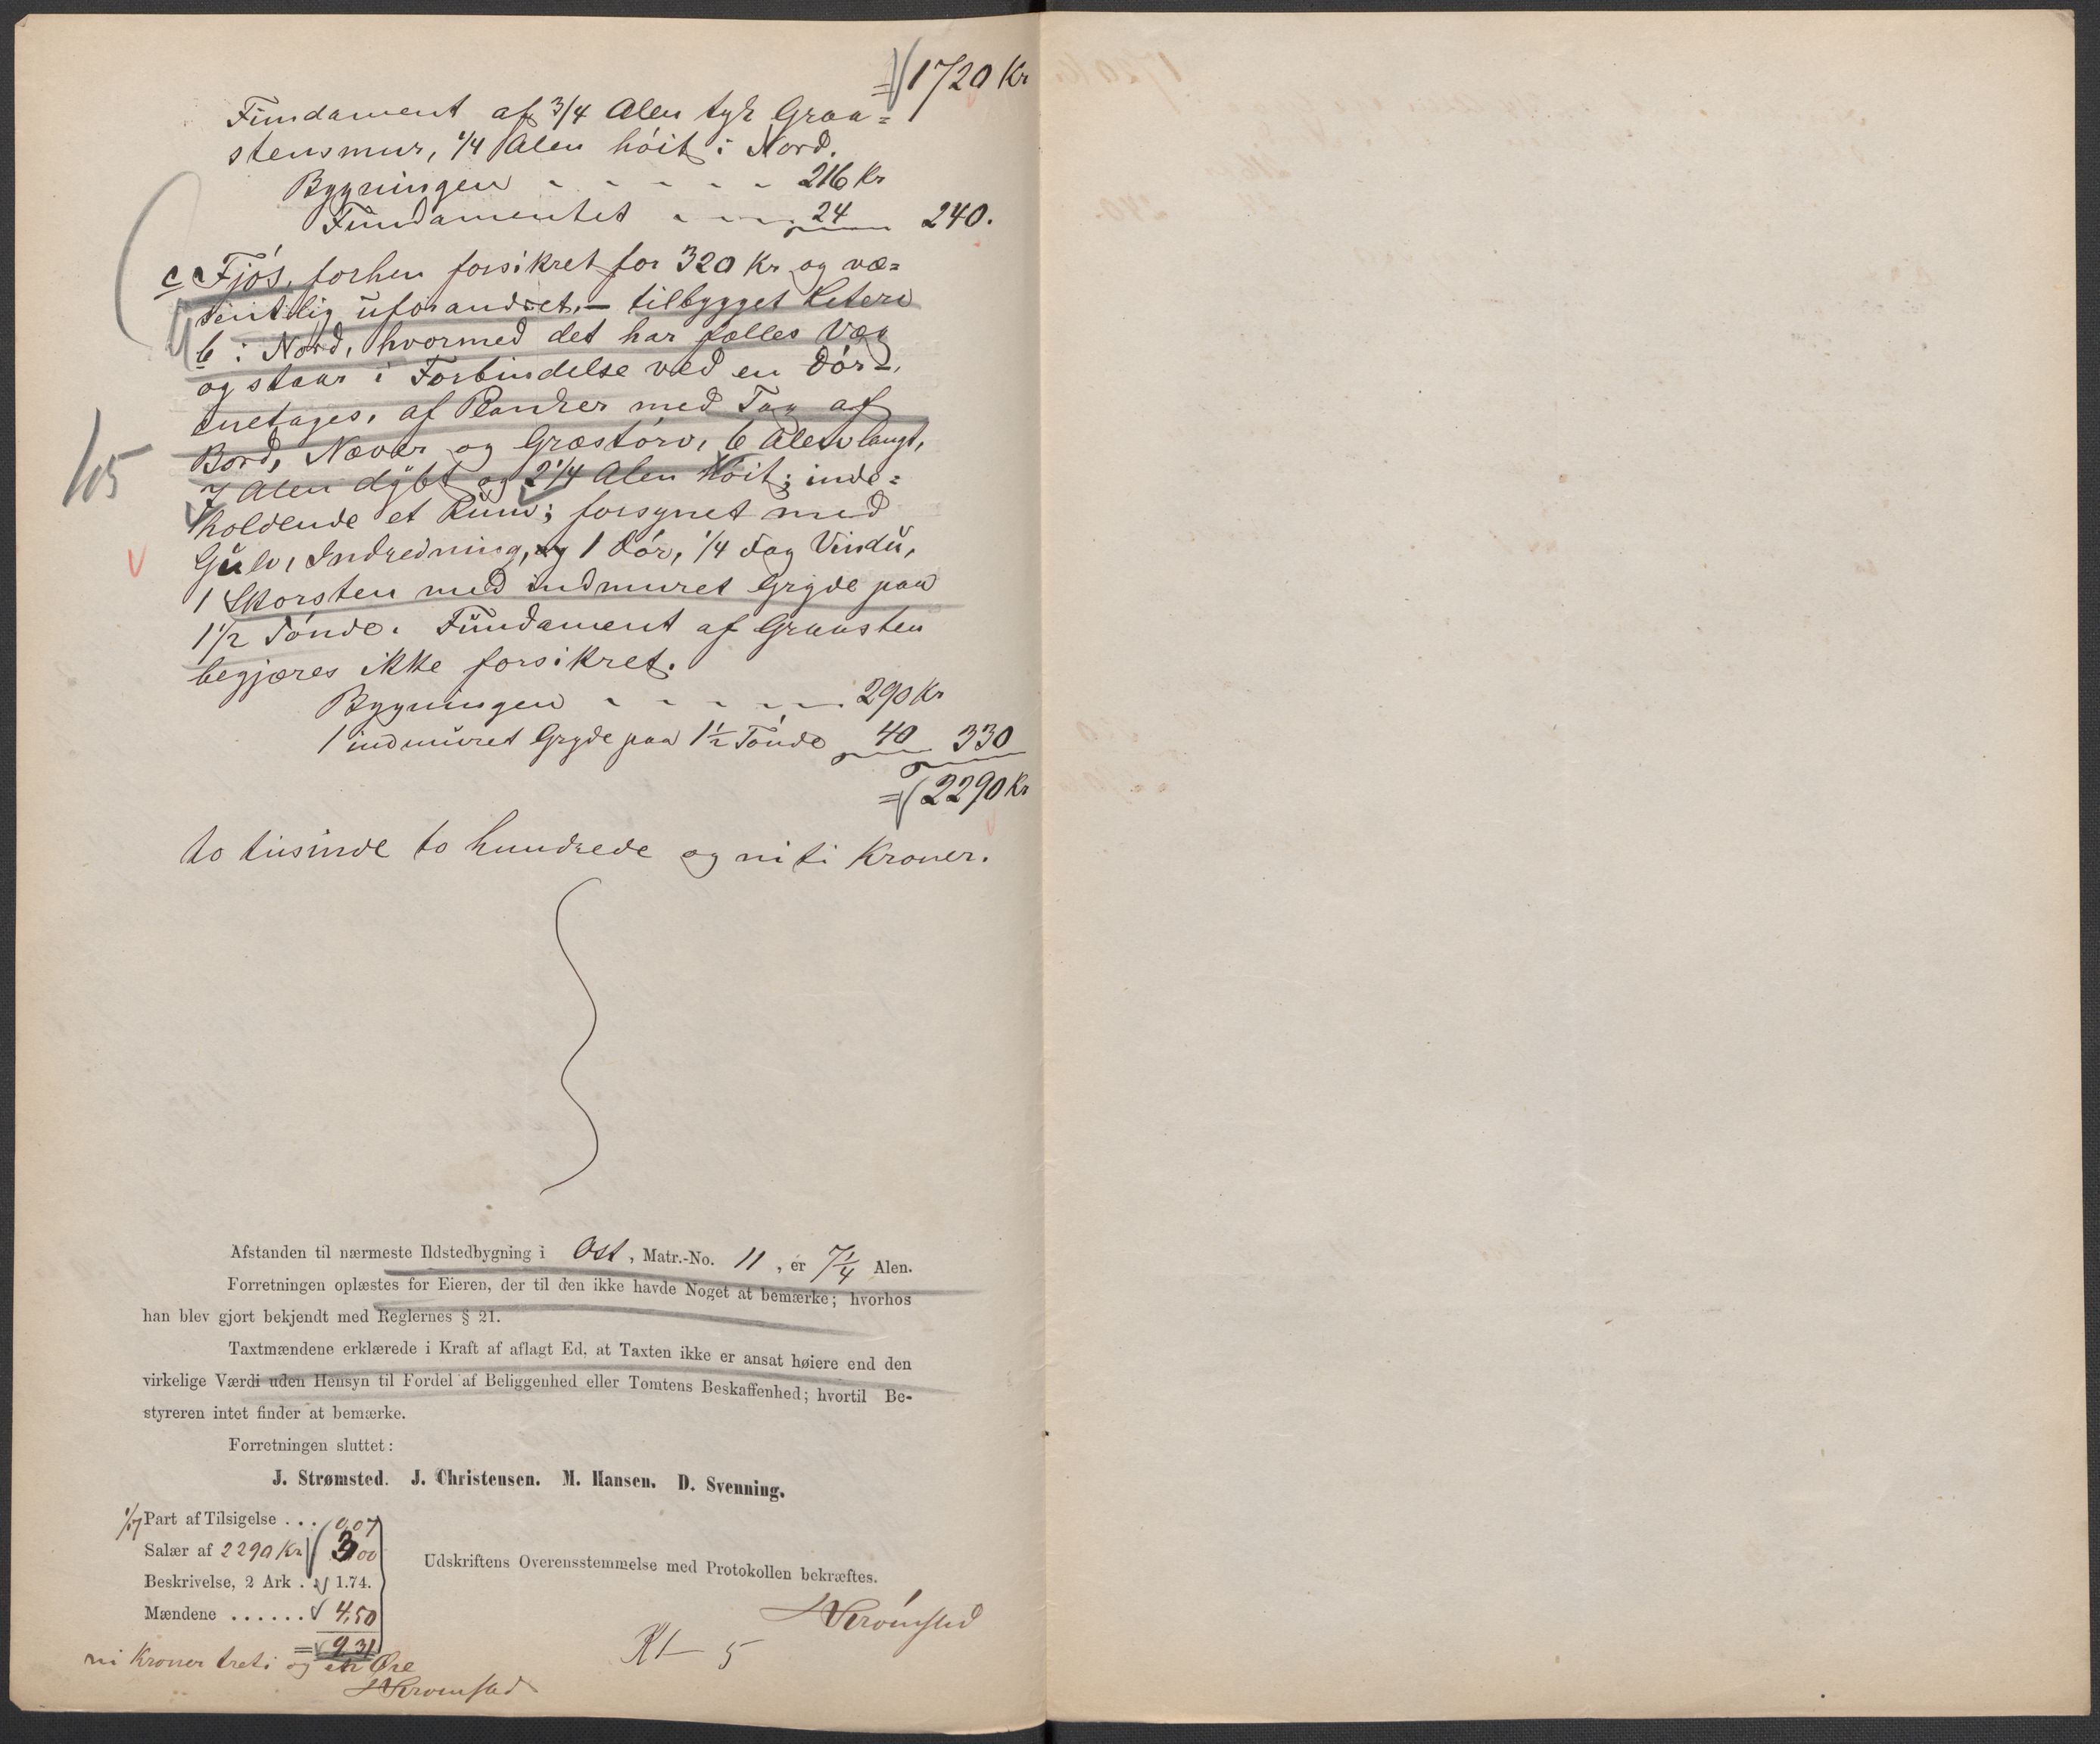 = 1720 Kr
Fundament af 3/4 Alen tyk Graa=
stensmur, 1/4 Alen höit i Nord.
Bygningen - - - - - - 216 Kr
Fundamentet - - - - 24 240.
c Fjós, forhen forsikret for 320 Kr og væ=
sentlig uforandret, — tilbygget Litera
b i Nord, hvormed det har fælles Væg
og staar i Forbindelse ved en Dór -,
enetages, af Planker med Tag af
Bord, Næver og Græstórv, 6 Alen langt,
7 Alen dybt og 2 1/4 Alen Höit; inde=
holdende et Rum; forsynet med
Gulv, Indredning, og 1 Dór, 1/4 Fag Vindu,
1 Skorsten med indmuret Gryde paa
1 1/2 Tónde. Fundament af Graasten
begjæres ikke forsikret.
Bygningen - - - - - - 290 Kr
1 indmuret Gryde paa 1 1/2 Tónde 40 330
= 2290 Kr
to tusinde to hundrede og niti Kroner.
Afstanden til nærmeste Ildstedbygning i Ost, Matr.-No. 11, er 7 1/4 Alen.
Forretningen oplæstes for Eieren, der til den ikke havde Noget at bemærke; hvorhos
han blev gjort bekjendt med Reglernes § 21.
Taxtmændene erklærede i Kraft af aflagt Ed, at Taxten ikke er ansat høiere end den
virkelige Værdi uden Hensyn til Fordel af Beliggenhed eller Tomtens Beskaffenhed; hvortil Be-
styreren intet finder at bemærke.
Forretningen sluttet:
J. Strømsted. J. Christensen. M. Hansen. D. Svenning.
1/17 Part af Tilsigelse . . . 0,07
Salær af 2290 Kr 3,00
Beskrivelse, 2 Ark . 1.74.
Mændene . . . . . . 4,50
= 9,31
ni Kroner treti og en Øre
JStrömsted
Udskriftens Overensstemmelse med Protokollen bekræftes.
JStrömsted